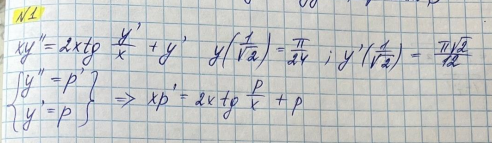 N1
xy'' = 2x tg y'/x + y'   y(1/√2) = π/24 ; y'(1/√2) = π√2/12
{y'' = p'
{y' = p} ⇒ xp' = 2x tg p/x + p